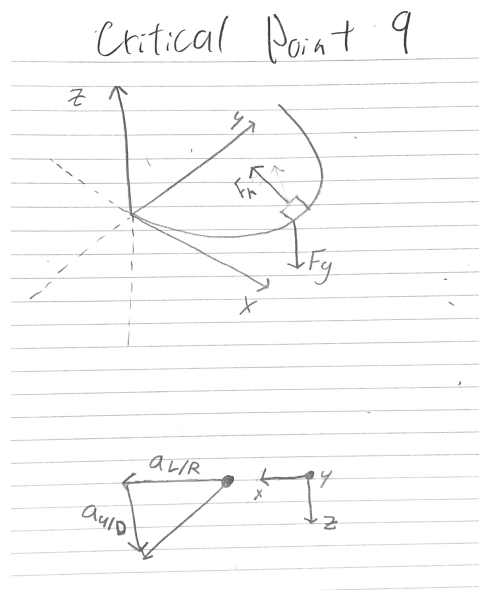 Critical Point 9
z
y
Fn
Fg
x
a L/R
a U/D
x
y
z